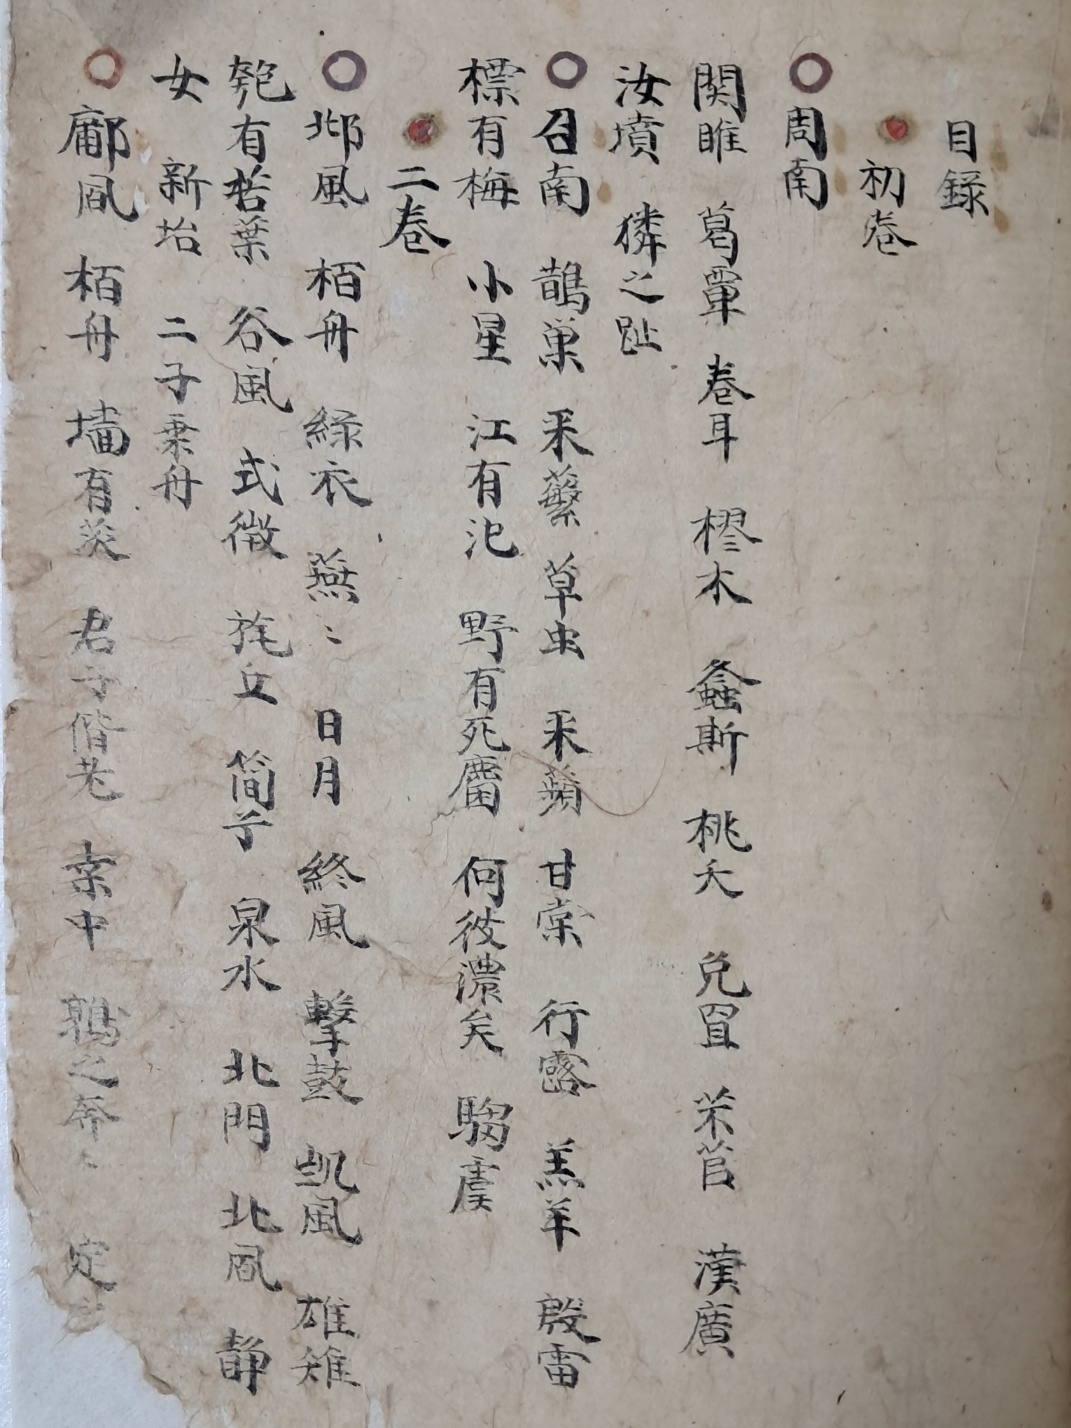 目録
初卷
周南
関睢 葛覃 卷耳 樛木 螽斯 桃夭 免罝 芣苢 漢廣
汝墳 獜之趾
召南 鵲巢 采蘩 草虫 采蘋 甘棠 行露 羔羊 殷雷
標有梅 小星 江有汜 野有死麕 何彼濃矣 騶虞
二卷
邶風 栢舟 綠衣 燕〻 日月 終風 擊鼓 凱風 雄雉
匏有若葉 谷風 式微 旄丘 简兮 泉水 北門 北風 静
女 新坮 二子乗舟
鄘風 栢舟 墻有茨 君子偕老 桒中 鶉之奔〻 定